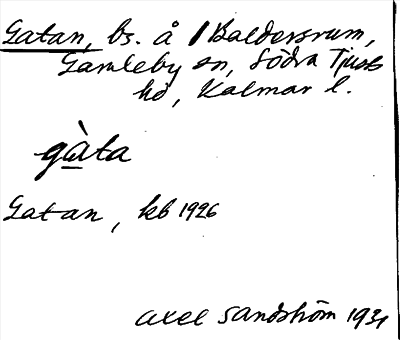 Gatan, bs. å Baldersrum,
Gamleby sn, Södra Tjusts
hd, Kalmar l.
gàta
Gatan, kb 1926
Axel Sandström 1931